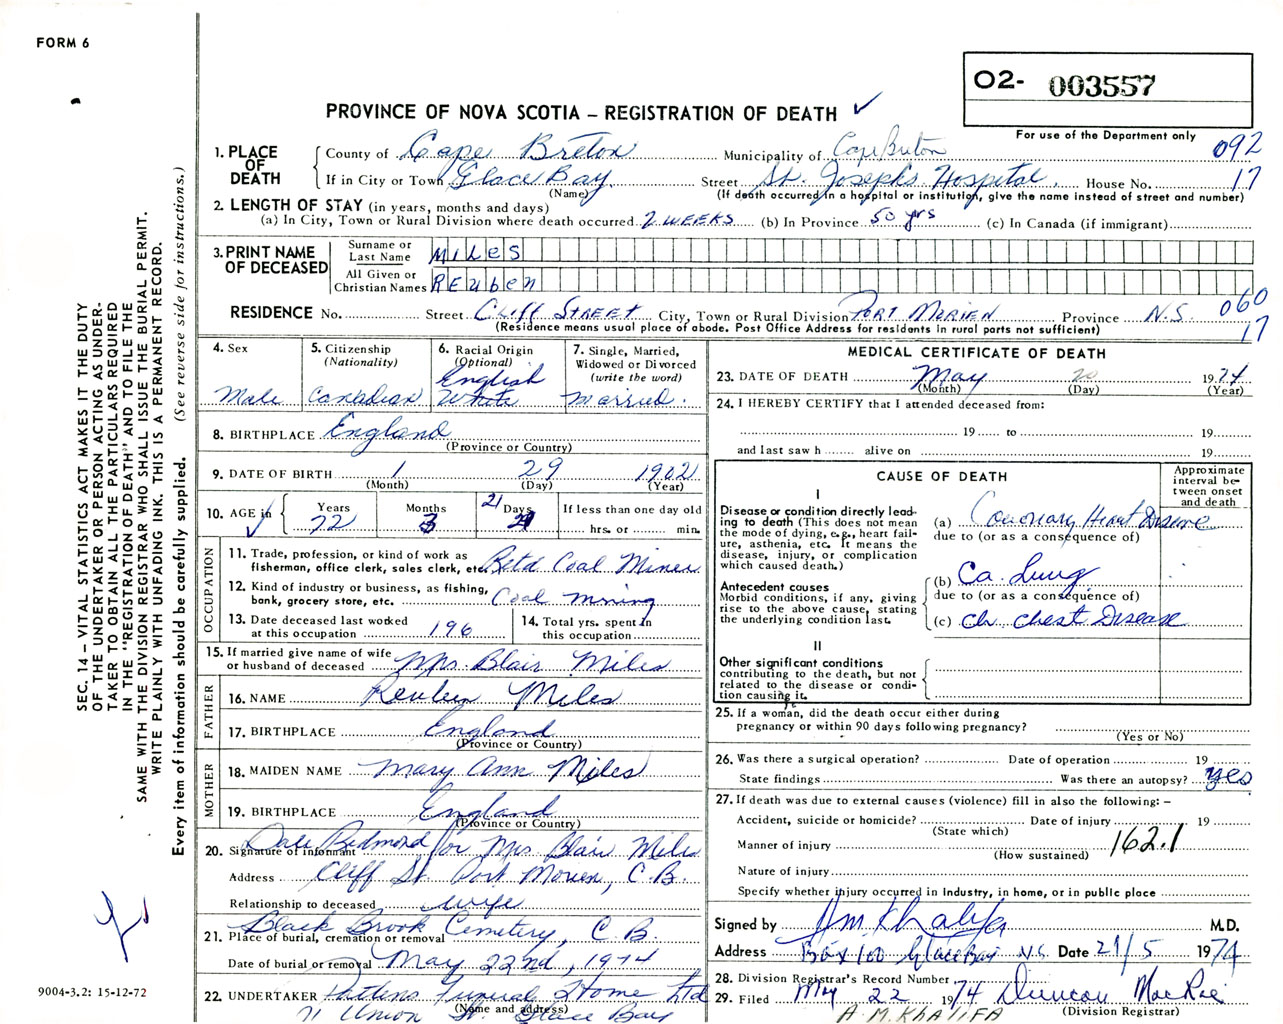 FORM 6
O2- 003557
PROVINCE OF NOVA SCOTIA – REGISTRATION OF DEATH ✓
For use of the Department only
092
17
1. PLACE OF DEATH
County of Cape Breton Municipality of Cape Breton
If in City or Town Glace Bay (Name) Street St. Joseph's Hospital. House No.
(If death occurred in a hospital or institution, give the name instead of street and number)
2. LENGTH OF STAY (in years, months and days)
(a) In City, Town or Rural Division where death occurred 2 WEEKS (b) In Province 50 yrs (c) In Canada (if immigrant)
3. PRINT NAME OF DECEASED
Surname or Last Name MILES
All Given or Christian Names REUBEN
RESIDENCE No. Street CLIFF STREET City, Town or Rural Division PORT MORIEN Province N.S. 060
17
(Residence means usual place of abode. Post Office Address for residents in rural parts not sufficient)
4. Sex
Male
5. Citizenship
(Nationality)
Canadian
6. Racial Origin
(Optional)
English
White
7. Single, Married,
Widowed or Divorced
(write the word)
Married.
8. BIRTHPLACE England
(Province or Country)
9. DATE OF BIRTH 1 29 1902
(Month) (Day) (Year)
10. AGE in Years 72 Months 3 Days 21
If less than one day old
hrs. or min.
OCCUPATION
11. Trade, profession, or kind of work as
fisherman, office clerk, sales clerk, etc. Ret'd Coal Miner
12. Kind of industry or business, as fishing,
bank, grocery store, etc. Coal mining
13. Date deceased last worked
at this occupation 196
14. Total yrs. spent in
this occupation
15. If married give name of wife
or husband of deceased Mrs. Blair Miles
FATHER
16. NAME Reuben Miles
17. BIRTHPLACE England
(Province or Country)
MOTHER
18. MAIDEN NAME Mary Ann Miles
19. BIRTHPLACE England
(Province or Country)
20. Signature of informant Dale Redmond for Mrs Blair Miles
Address Cliff St. Port Morien, C.B.
Relationship to deceased wife
21. Place of burial, cremation or removal Black Brook Cemetery, C B
Date of burial or removal May 22nd, 1974
22. UNDERTAKER Pattens Funeral Home Ltd
(Name and address)
71 Union St. Glace Bay
MEDICAL CERTIFICATE OF DEATH
23. DATE OF DEATH May 20 1974
(Month) (Day) (Year)
24. I HEREBY CERTIFY that I attended deceased from:
19 to 19
and last saw h alive on 19
CAUSE OF DEATH
Approximate
interval be-
tween onset
and death
I
Disease or condition directly lead-
ing to death (This does not mean
the mode of dying, e.g., heart fail-
ure, asthenia, etc. It means the
disease, injury, or complication
which caused death.)
(a) Coronary Heart Disease
due to (or as a consequence of)
Antecedent causes
Morbid conditions, if any, giving
rise to the above cause, stating
the underlying condition last.
(b) Ca. Lung
due to (or as a consequence of)
(c) Ch. Chest Disease
II
Other significant conditions
contributing to the death, but not
related to the disease or condi-
tion causing it.
25. If a woman, did the death occur either during
pregnancy or within 90 days following pregnancy?
(Yes or No)
26. Was there a surgical operation? Date of operation 19
State findings Was there an autopsy? yes
27. If death was due to external causes (violence) fill in also the following: –
Accident, suicide or homicide? Date of injury 19
(State which)
Manner of injury 162.1
(How sustained)
Nature of injury
Specify whether injury occurred in industry, in home, or in public place
Signed by A M Khalifa M.D.
Address Box 100 Glace Bay N.S. Date 21/5 1974
28. Division Registrar's Record Number
29. Filed May 22 1974 Duncan MacRae
(Division Registrar)
A.M. KHALIFA
SEC. 14 – VITAL STATISTICS ACT MAKES IT THE DUTY
OF THE UNDERTAKER OR PERSON ACTING AS UNDER-
TAKER TO OBTAIN ALL THE PARTICULARS REQUIRED
IN THE "REGISTRATION OF DEATH" AND TO FILE THE
SAME WITH THE DIVISION REGISTRAR WHO SHALL ISSUE THE BURIAL PERMIT.
WRITE PLAINLY WITH UNFADING INK. THIS IS A PERMANENT RECORD.
Every item of information should be carefully supplied. (See reverse side for instructions.)
9004-3.2: 15-12-72